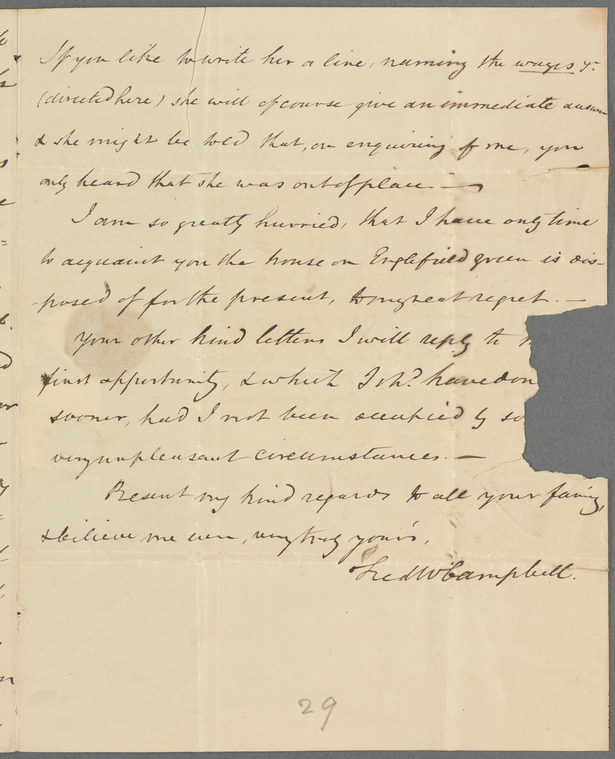 If you like to write her a line, naming the wages &c.
(directed here) she will of course give an immediate answer
& she might be told that, on enquiring of me, you
only heard that she was out of place. —
I am so greatly hurried, that I have only time
to acquaint you the house on Englefield green is dis-
-posed of for the present, to my great regret. —
Your other kind letters I will reply to
first opportunity, & which I shd. have don
sooner, had I not been occupied by so
very unpleasant circumstances. —
Present my kind regards to all your family,
& believe me ever, very truly yours,
Fred W Campbell.
29